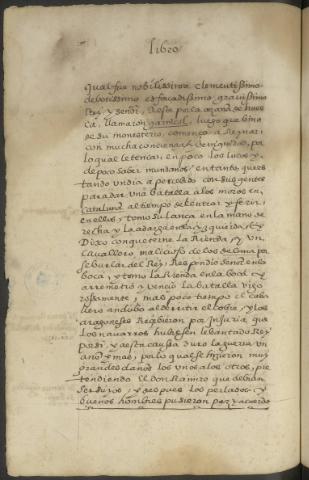 libro
qual fue nobilissimo clementissimo
debotissimo esforçadissimo, graciosissimo
Rey y señor, a este por la              de hues
ca, llamaron          , luego que bino
de su monesterio, començo a Reynar
con mucha conciencia de            , por
lo qual le tenian, en poco los suyos y
de poco saber mundano, en tanto que es
tando un dia a perçebido con sus gentes
para dar una batalla a los moros en,
cataluña al tiempo de entrar y ferir,
en ellos; tomo su lança en la mano de
recha y la adarga en la yzquierda, Y
Dixo con que terne la Rienda, Y un,
cavallero, malicioso de los           por
se burlar del Rey, Respondio señor en la
boca, y tomo la Rienda en la boca y
arremetio y vencio la batalla vigo
rosamente, mas poco tiempo el caba
llero andubo al             , y los
aragoneses Reçibieron por injuria que
los navarros hubiesen lebantado Rey
por si, y a esta causa duro la guerra un
año y mas, por lo qual se hizieron muy
grandes daños los unos a los otros, pre
tendiendo El don Ramiro que debian
ser suyos, y despues los perlados y
buenos hombres pusieron paz y acuerdo